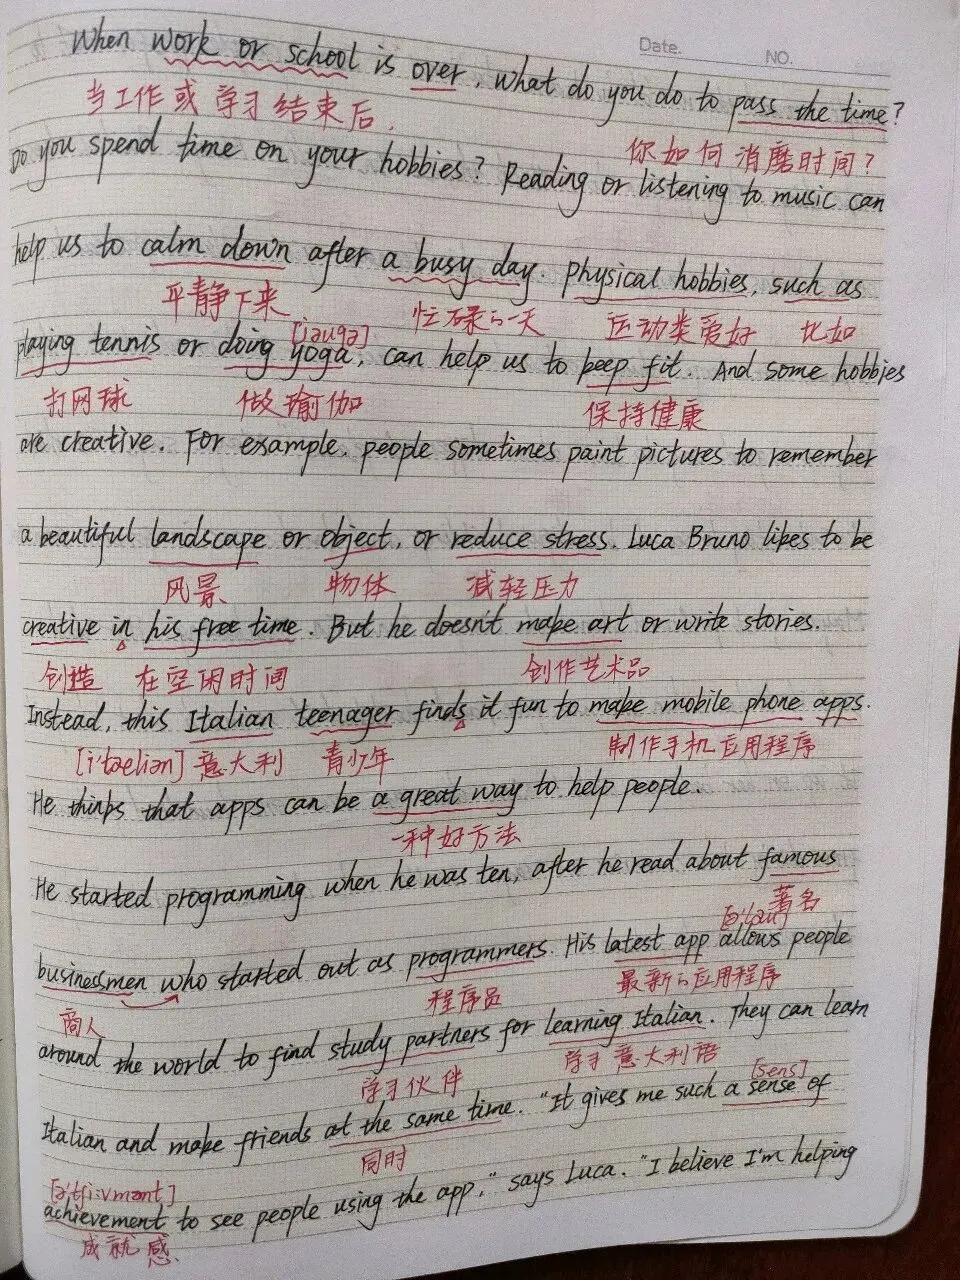 Date.
NO.
When work or school is over, what do you do to pass the time?
当工作或学习结束后,
你如何消磨时间?
Do you spend time on your hobbies? Reading or listening to music can
help us to calm down after a busy day. Physical hobbies, such as
平静下来 忙碌的一天 运动类爱好 比如
[ˈjəʊgə]
playing tennis or doing yoga, can help us to keep fit. And some hobbies
打网球 做瑜伽 保持健康
are creative. For example, people sometimes paint pictures to remember
a beautiful landscape or object, or reduce stress. Luca Bruno likes to be
风景 物体 减轻压力
creative in his free time. But he doesn't make art or write stories.
创造 在空闲时间 创作艺术品
Instead, this Italian teenager finds it fun to make mobile phone apps.
[ɪˈtælɪən] 意大利 青少年 制作手机应用程序
He thinks that apps can be a great way to help people.
一种好方法
He started programming when he was ten, after he read about famous
著名
[əˈlaʊ]
businessmen who started out as programmers. His latest app allows people
商人 程序员 最新的应用程序
around the world to find study partners for learning Italian. They can learn
学习伙伴 学习意大利语
[sens]
Italian and make friends at the same time. "It gives me such a sense of
同时
[əˈtʃiːvmənt]
achievement to see people using the app," says Luca. "I believe I'm helping
成就感